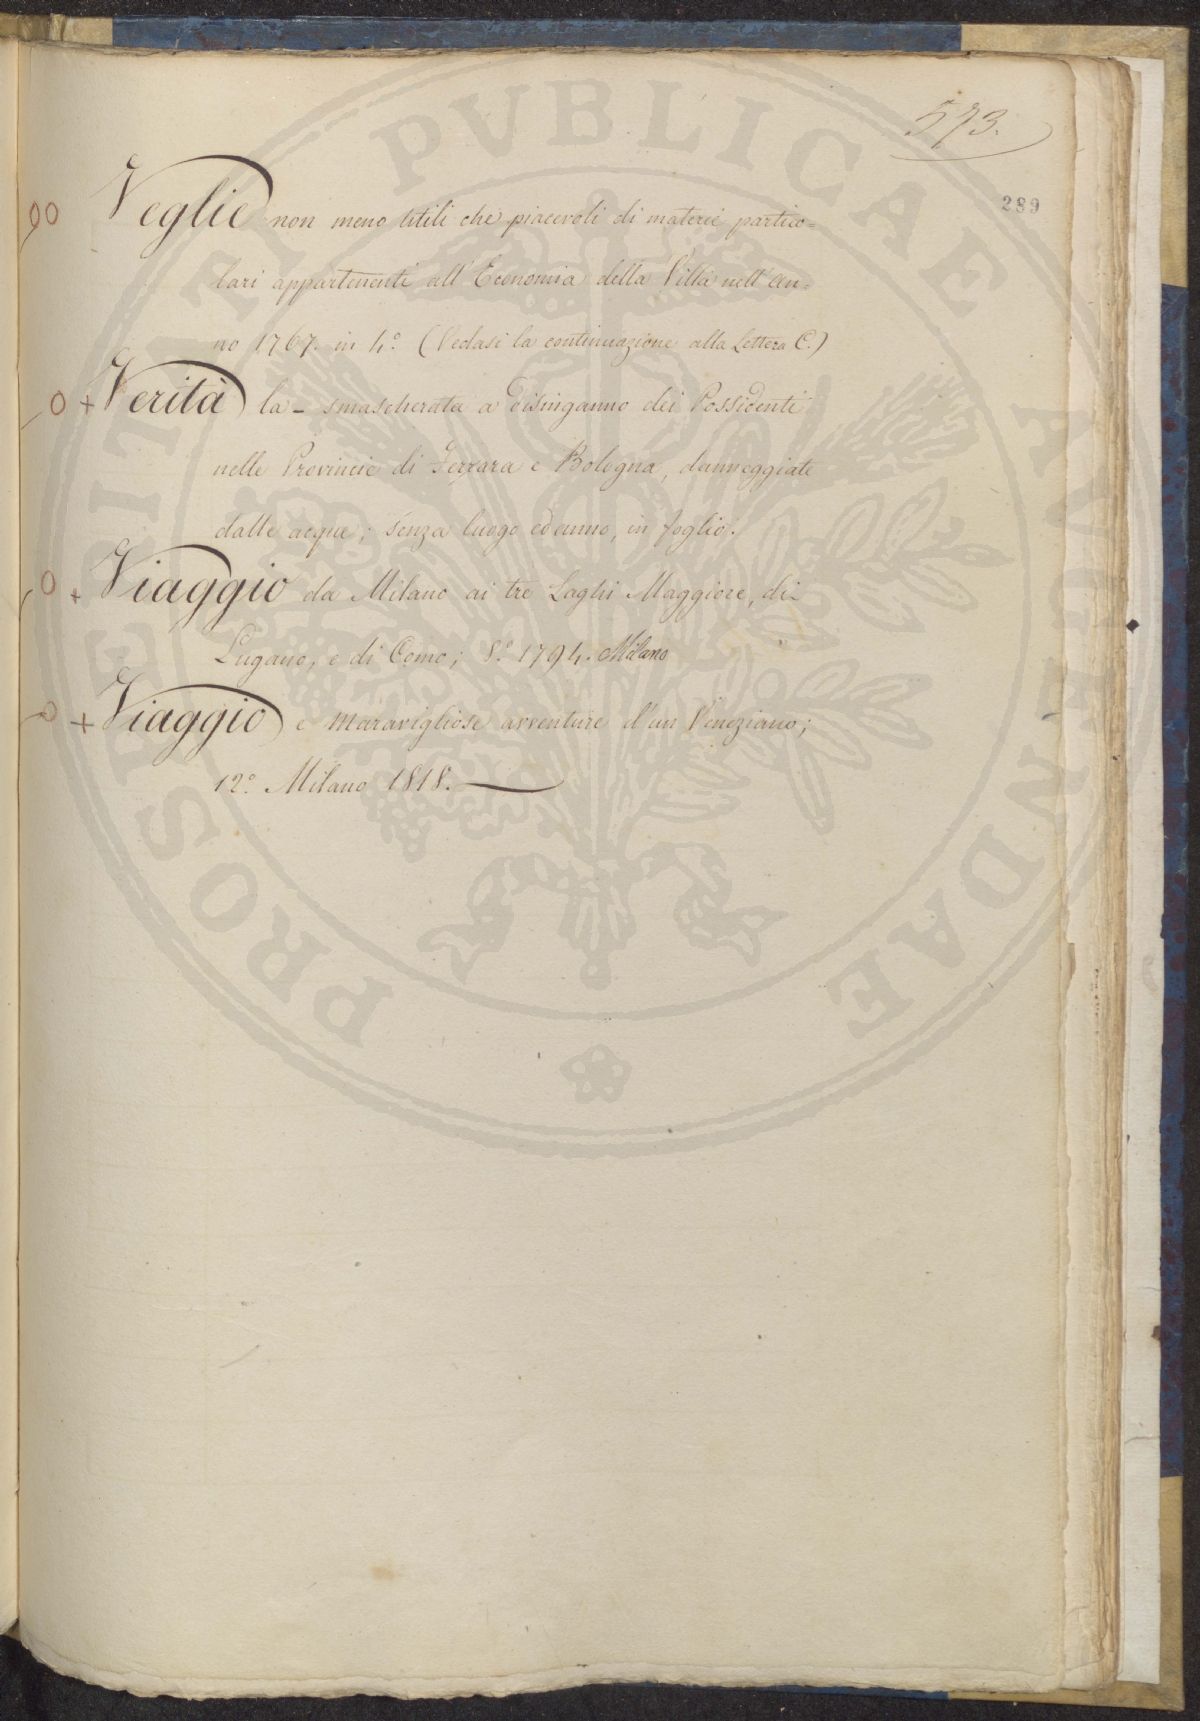 573.
289
90 Veglie non meno utili che piacevoli di materie partico=
lari appartenenti all' Economia della Villa nell' an=
no 1767. in 4.° (Vedasi la continuazione alla Lettera C.)
0 + Verità la - smascherata a disinganno dei Possidenti
nelle Provincie di Ferrara e Bologna, danneggiate
dalle acque; senza luogo ed anno, in foglio.
0 + Viaggio da Milano ai tre Laghi Maggiore, di
Lugano, e di Como; 8.° 1794. Milano
0 + Viaggio e maravigliose avventure d'un Veneziano;
12.° Milano 1818.
PROSPERITATI PVBLICAE AVGENDAE